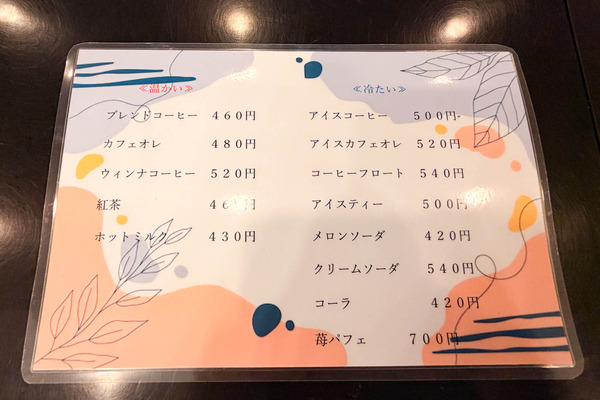 ≪温かい≫
ブレンドコーヒー ４６０円
カフェオレ ４８０円
ウィンナコーヒー ５２０円
紅茶
ホットミルク ４３０円
≪冷たい≫
アイスコーヒー ５００円
アイスカフェオレ ５２０円
コーヒーフロート ５４０円
アイスティー ５００円
メロンソーダ ４２０円
クリームソーダ ５４０円
コーラ ４２０円
苺パフェ ７００円